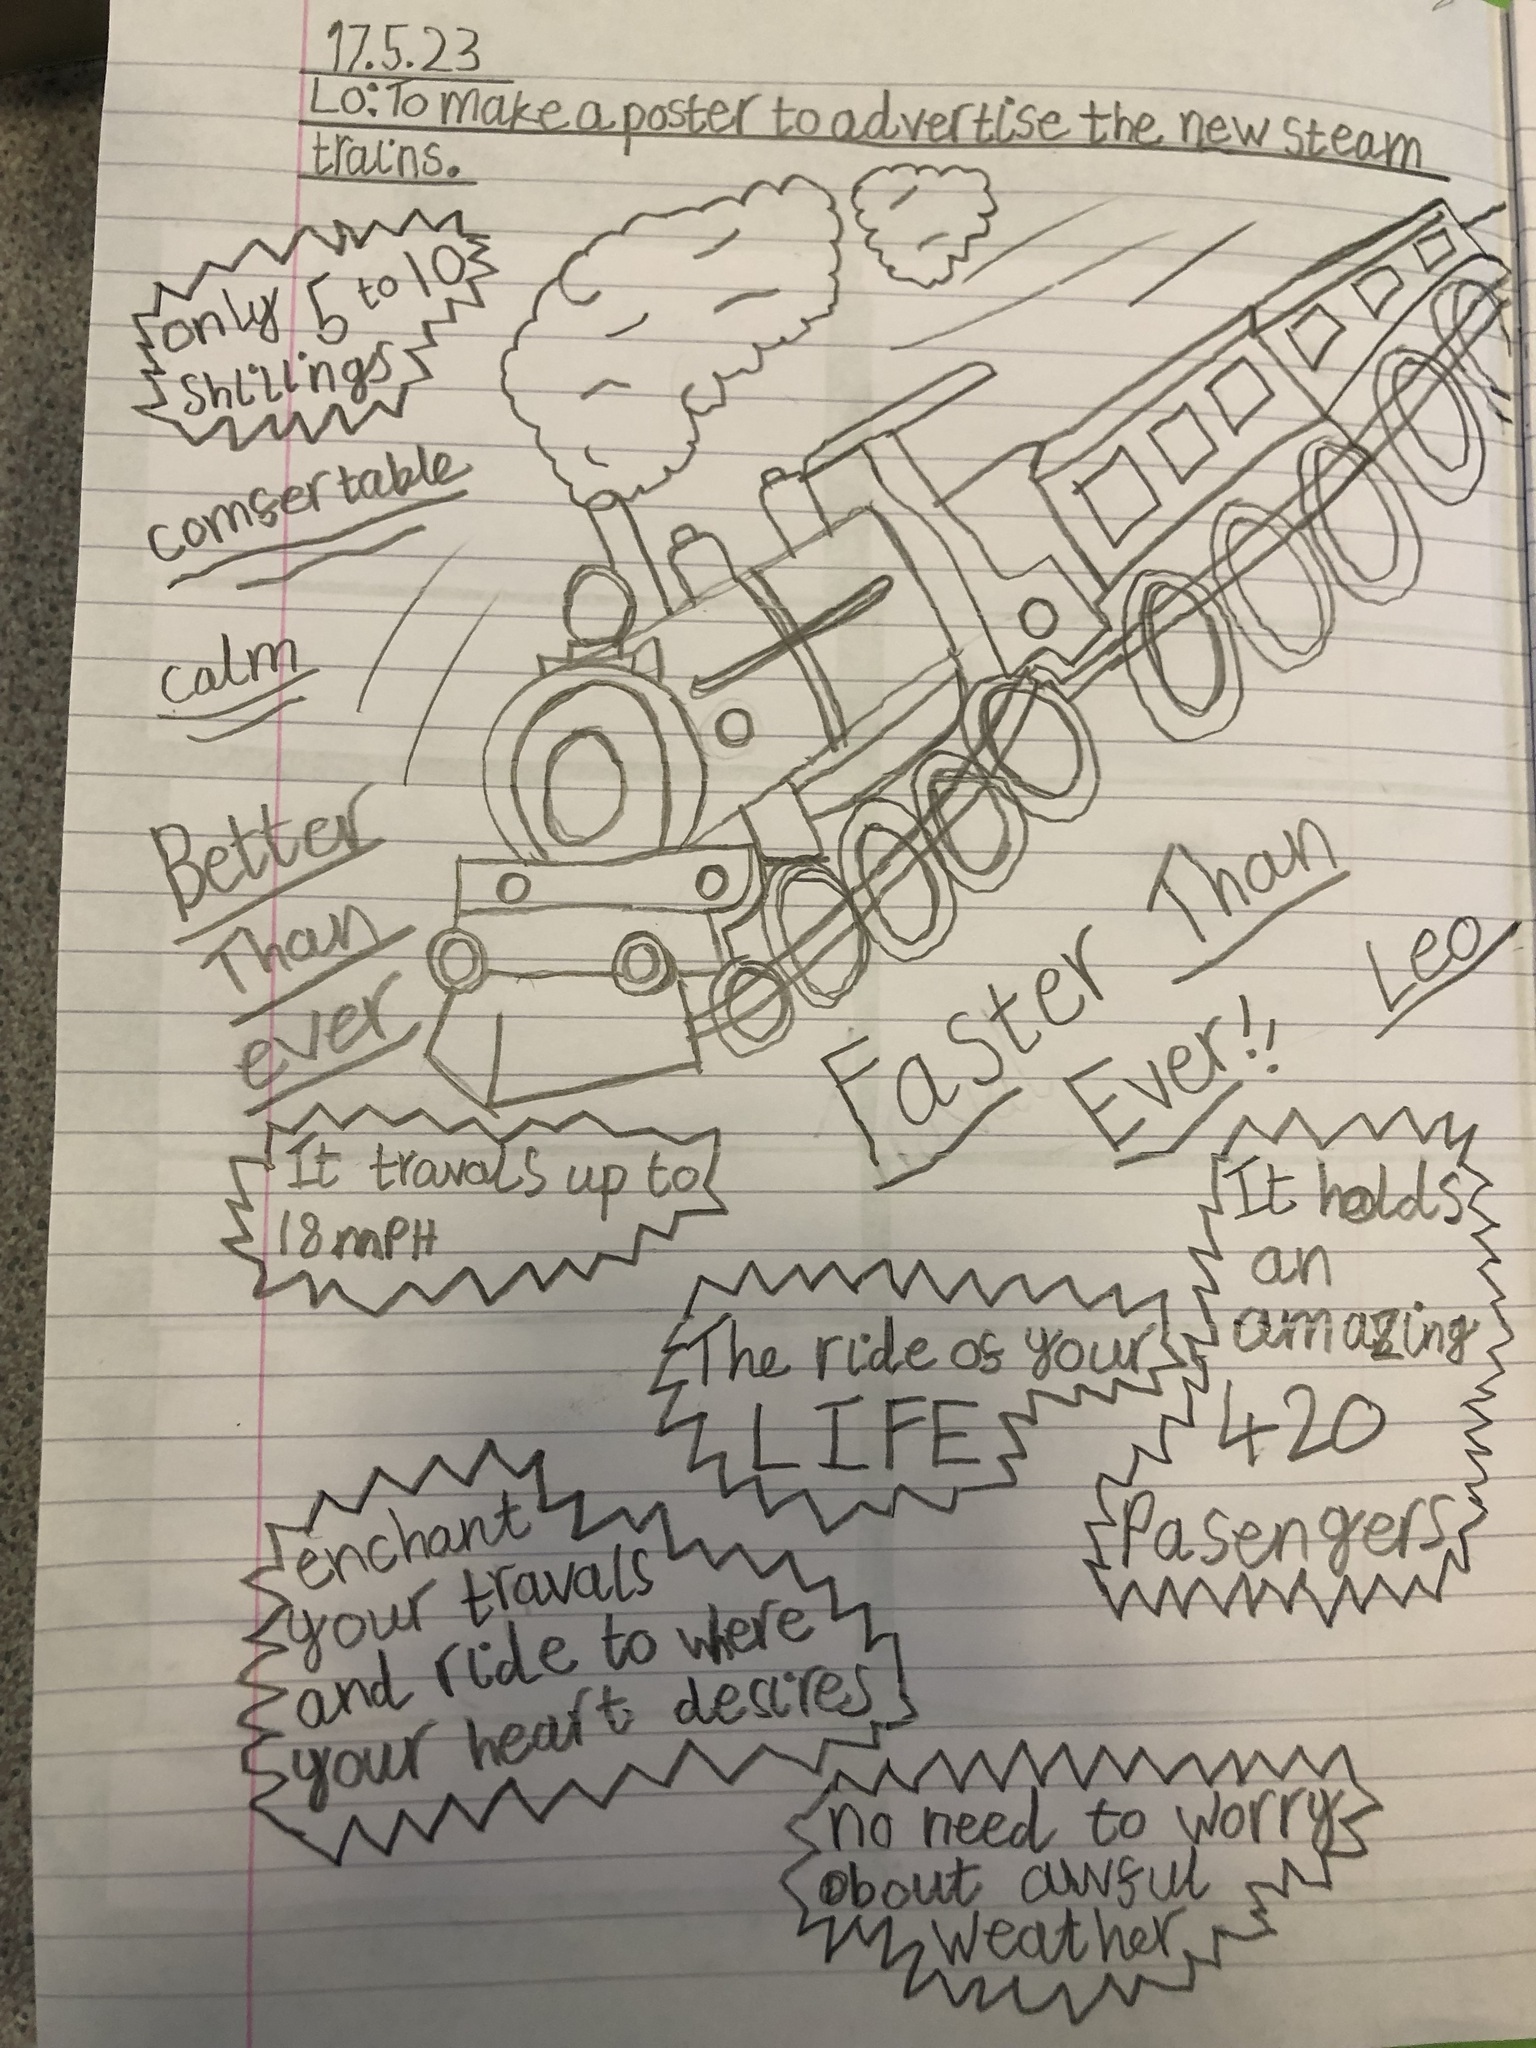 17.5.23
Lo: To make a poster to advertise the new steam
trains.
only 5 to 10
shillings
comfertable
calm
Better
Than
ever
Faster Than
Ever!!
Leo
It travals up to
18 mPH
It holds
an
amazing
420
Pasengers
The ride of your
LIFE
enchant
your travals
and ride to where
your heart desires
no need to worry
about awful
weather